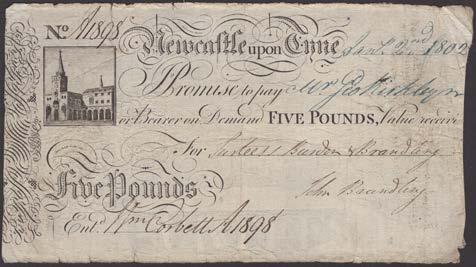 No. A1898
Newcastle upon Tyne Jany. 2nd 1802
I Promise to pay Mr
or Bearer on Demand FIVE POUNDS, Value receiv
For Surtees Burdon & Brandling
Five Pounds
John Brandling
Entd. Wm Corbett A1898